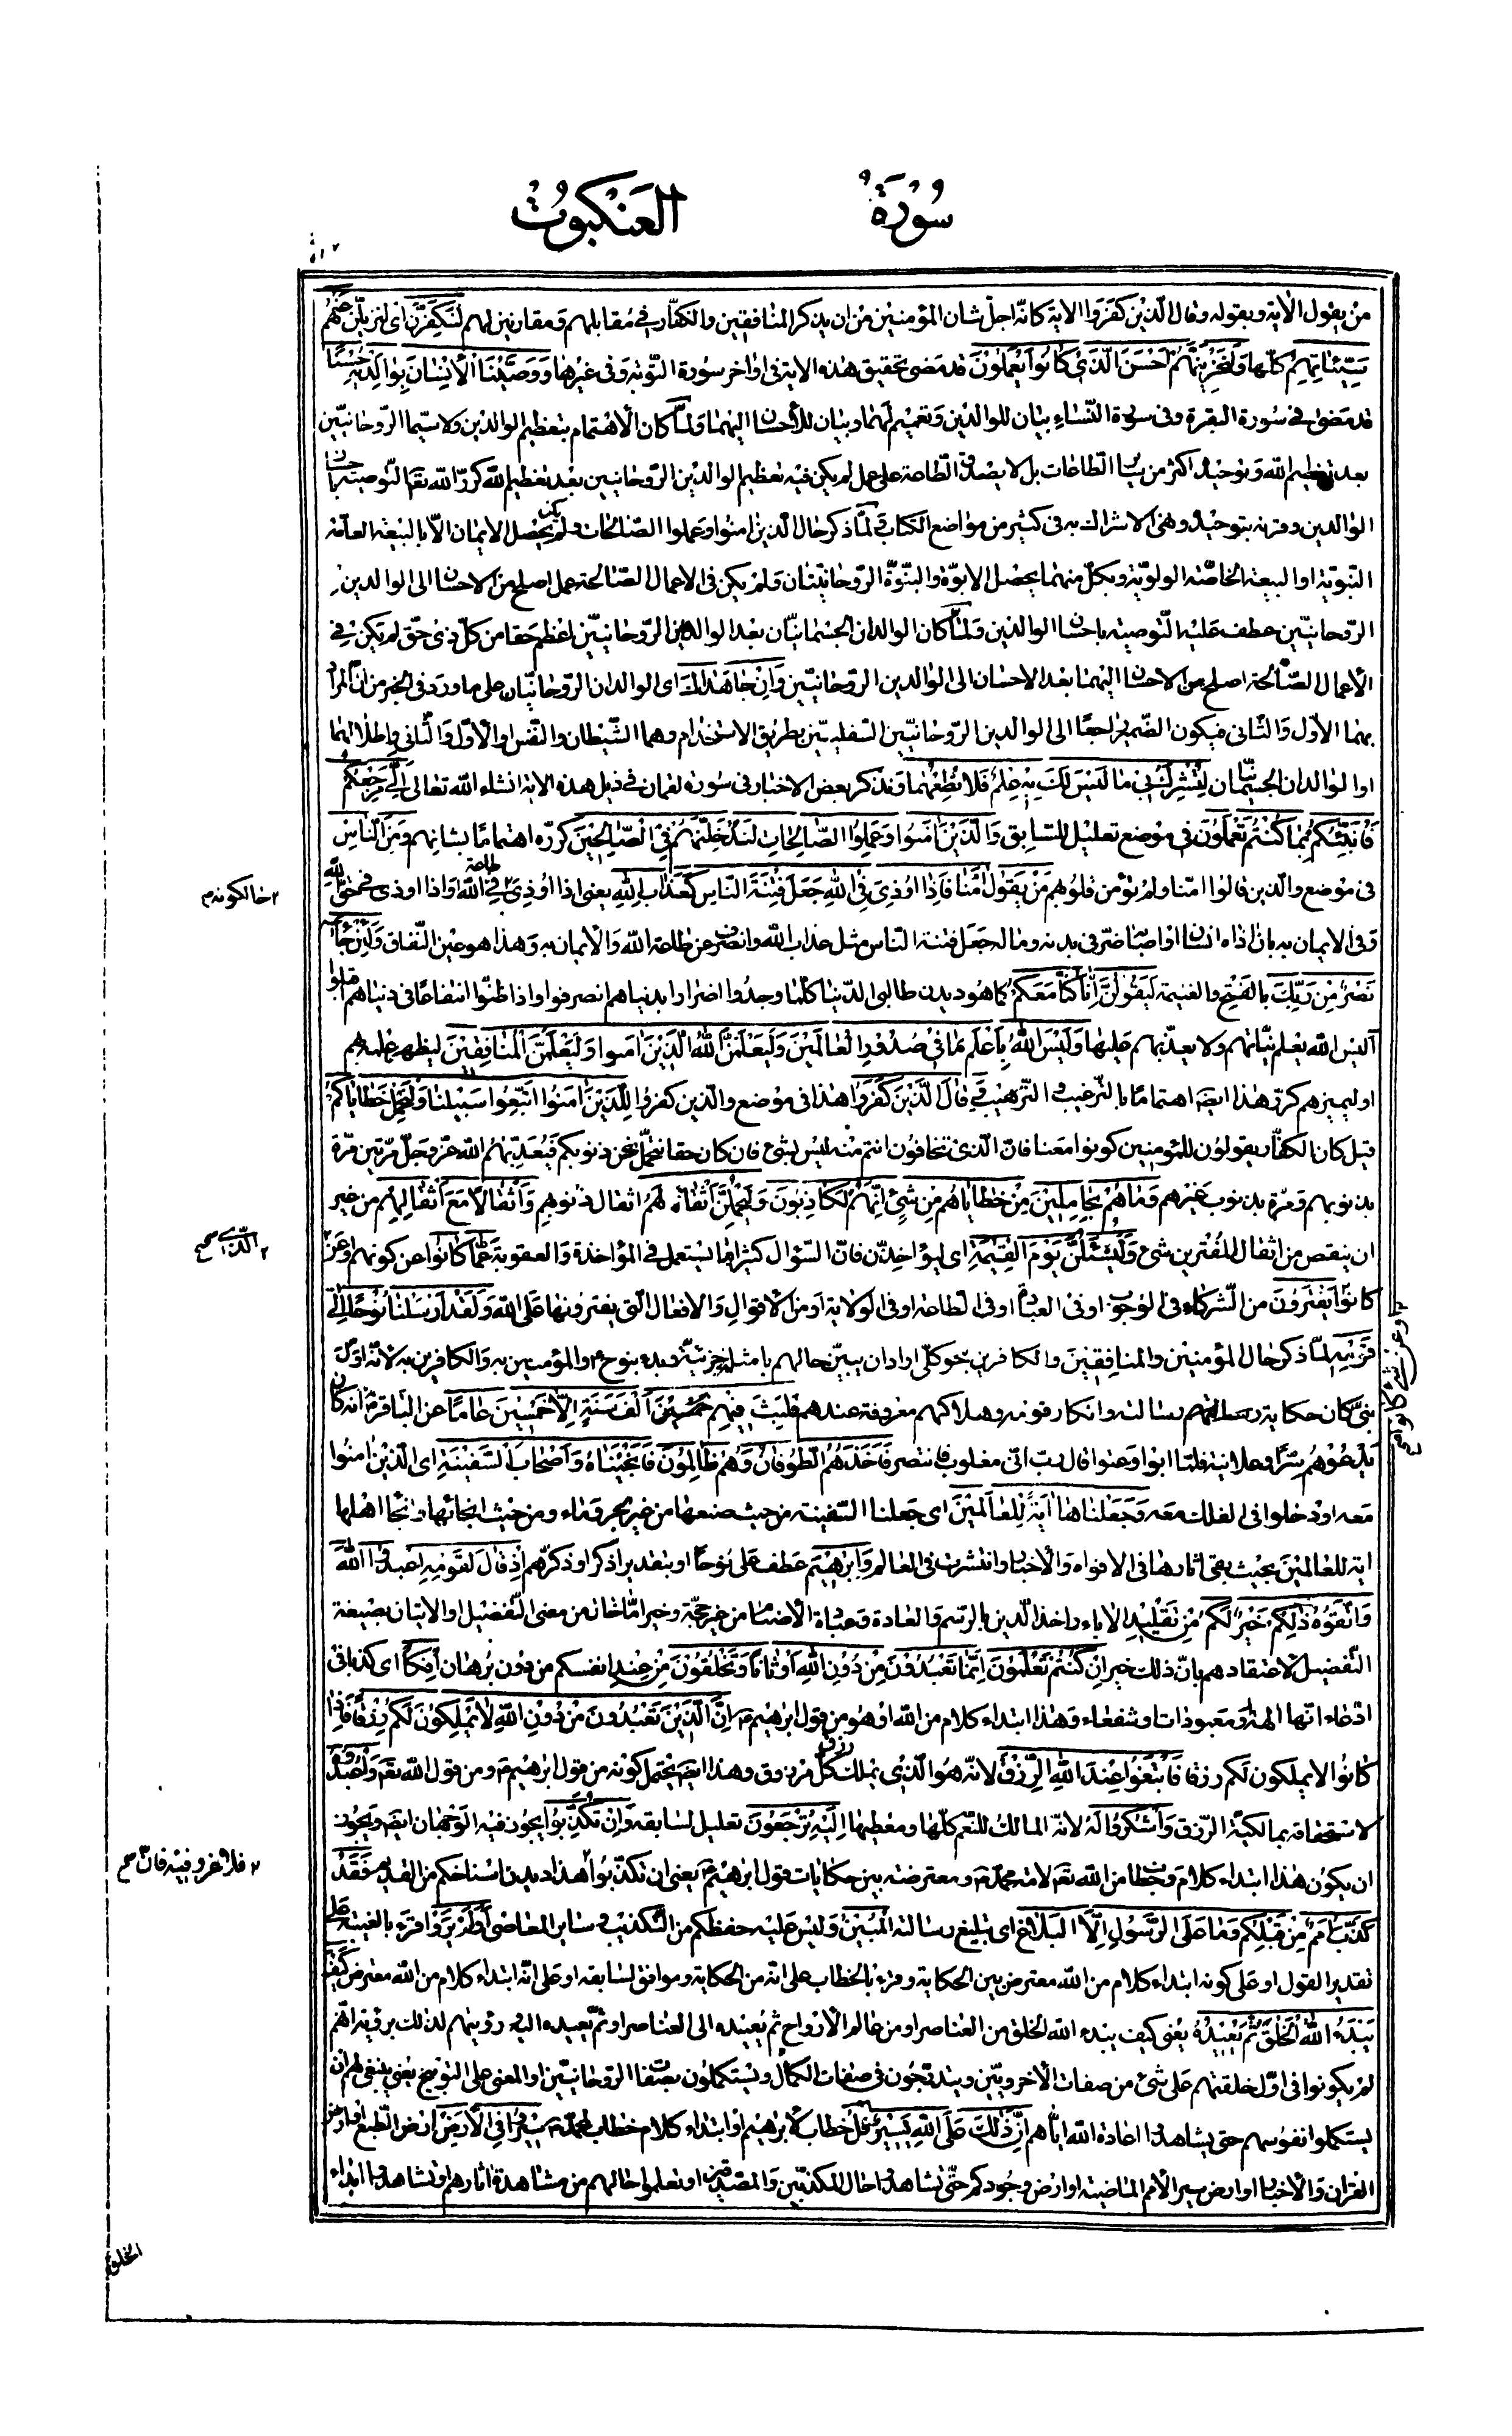 سُورَةُ العَنْكَبُوتِ
من يقول الاية وبقوله وقال الّذين كفروا الاية كانّه اجلّ شان المؤمنين من ان يذكر المنافقين والكفّار فى مقابلهم ومقارنين لهم لَنُكَفِّرَنَّ اى لنزيلنّ عَنْهُمْ
سَيِّئَاتِهِمْ كلّها وَلَنَجْزِيَنَّهُمْ اَحْسَنَ الَّذِى كَانُوا يَعْمَلُونَ قد مضى تحقيق هذه الاية فى اواخر سورة التّوبة وفى غيرها وَوَصَّيْنَا الْاِنْسَانَ بِوَالِدَيْهِ حُسْنًا
قد مضى فى سورة البقرة وفى سورة النّساء بيان للوالدين وتعميم لهما وبيان للأحسان اليهما ولمّا كان الاهتمام بتعظيم الوالدين ولا سيّما الرّوحانيّين
بعد تعظيم الله وتوحيده اكثر من سائر الطّاعات بل لا يصدق الطّاعة على عمل لم يكن فيه تعظيم الوالدين الرّوحانيين بعد تعظيم الله كرّر الله تعالى التّوصية باحسان
الوالدين وقرنه بتوحيده ونهى الاشراك به فى كثير من مواضع الكتاب ولمّا ذكر حال الّذين امنوا وعملوا الصّالحات ولم يكن يحصل الايمان الّا بالبيعة العامّة
النّبويّة او البيعة الخاصّة الولويّة وبكلّ منهما يحصل الابوّة والبنوّة الرّوحانيّتان ولم يكن فى الاعمال الصّالحة عمل اصلح من الاحسان الى الوالدين
الرّوحانيّين عطف عليه التّوصية باحسان الوالدين ولمّا كان الوالدان الجسمانيّان بعد الوالدين الرّوحانيّين اعظم حقّا من كلّ ذى حقّ لم يكن فى
الأعمال الصّالحة اصلح من الاحسان اليهما بعد الاحسان الى الوالدين الرّوحانيّين وَاِنْ جَاهَدَاكَ اى الوالدان الرّوحانيّان على ما ورد فى الخبر من انّ المراد
بهما الأوّل والثّانى فيكون الضّمير راجعًا الى الوالدين الرّوحانيّين السّفليّين بطريق الاستخدام وهما الشّيطان والنّفس او الأوّل والثّانى واظلالهما
او الوالدان الجسمانيّان لِتُشْرِكَ بِى مَا لَيْسَ لَكَ بِهِ عِلْمٌ فَلَا تُطِعْهُمَا وقد ذكر بعض الاخبار فى سورة لقمان فى ذيل هذه الاية انشاء الله تعالى اِلَىَّ مَرْجِعُكُمْ
فَاُنَبِّئُكُمْ بِمَا كُنْتُمْ تَعْمَلُونَ فى موضع تعليل للسّابق وَالَّذِينَ اٰمَنُوا وَعَمِلُوا الصَّالِحَاتِ لَنُدْخِلَنَّهُمْ فِى الصَّالِحِينَ كرّره اهتمامًا بشانهم وَمِنَ النَّاسِ
فى موضع والّذين قالوا امنّا ولم تؤمن قلوبهم مَنْ يَقُولُ اٰمَنَّا فَاِذَا اُوذِىَ فِى اللهِ جَعَلَ فِتْنَةَ النَّاسِ كَعَذَابِ اللهِ يعنى اذا اوذى فى طاعة الله واذا اوذى فى حقّ الله
٢ حالكونه م
وفى الايمان به بان اذاه انسان او اصابه ضرّ فى بدنه وماله جعل فتنة النّاس مثل عذاب الله وانصرف عن طاعة الله والايمان به وهذا هو عين النّفاق وَلَئِنْ جَاءَ
نَصْرٌ مِنْ رَبِّكَ بالفتح والغنيمة لَيَقُولُنَّ اِنَّا كُنَّا مَعَكُمْ كما هو ديدن طالبى الدّنيا كلّما وجدوا اضرارا بدنياهم انصرفوا واذا ظنّوا انتفاعًا فى دنياهم
أليس الله يعلم نيّاتهم ولا يعذّبهم عليها وَلَيْسَ اللهُ بِاَعْلَمَ بِمَا فِى صُدُورِ الْعَالَمِينَ وَلَيَعْلَمَنَّ اللهُ الَّذِينَ اٰمَنُوا وَلَيَعْلَمَنَّ الْمُنَافِقِينَ ليظهر علمه بهم
او ليميزهم كرّر هذا ايضًا اهتمامًا بالتّرغيب والتّرهيب وَقَالَ الَّذِينَ كَفَرُوا هذا فى موضع والّذين كفروا لِلَّذِينَ اٰمَنُوا اتَّبِعُوا سَبِيلَنَا وَلْنَحْمِلْ خَطَايَاكُمْ
قيل كان الكفّار يقولون للمؤمنين كونوا معنا فانّ الّذى تخافون انتم منه ليس بشئ فان كان حقّا نتحمّل نحن ذنوبكم فيعذّبهم الله عزّ وجلّ مرّتين مرّة
بذنوبهم ومرّة بذنوب غيرهم وَمَا هُمْ بِحَامِلِينَ مِنْ خَطَايَاهُمْ مِنْ شَىْءٍ اِنَّهُمْ لَكَاذِبُونَ وَلَيَحْمِلُنَّ اَثْقَالَهُمْ اثقال ذنوبهم وَاَثْقَالًا مَعَ اَثْقَالِهِمْ من غير
ان ينقص من اثقال المفترين شئ وَلَيُسْئَلُنَّ يَوْمَ الْقِيٰمَةِ اى ليؤاخذنّ فانّ السّؤال كثيرا ما يستعمل فى المؤاخذة والعقوبة عَمَّا كَانُوا عن كونهم او عن
٢ الّذى صح
كَانُوا يَفْتَرُونَ من الشّركاء فى الوجوب او فى العبادة او فى الطاعة او فى الولاية او من الاقوال والافعال الّتى يفترونها على الله وَلَقَدْ اَرْسَلْنَا نُوحًا اِلٰى
قَوْمِهِ لمّا ذكر حال المؤمنين والمنافقين والكافرين بنحو كلّىّ اراد ان يبيّن حالهم بامثلة جزئيّة وبدء بنوح ع والمؤمنين به والكافرين به لانّه اوّل
نبىّ كان حكاية رسالته وانكار قومه وهلاكهم معروفة عندهم فَلَبِثَ فِيهِمْ اَلْفَ سَنَةٍ اِلَّا خَمْسِينَ عَامًا عن الباقر ع انّه كان
يدعوهم سرًّا وعلانية فلمّا ابوا وعتوا قال ربّ انّى مغلوب فانتصر فَاَخَذَهُمُ الطُّوفَانُ وَهُمْ ظَالِمُونَ فَاَنْجَيْنَاهُ وَاَصْحَابَ السَّفِينَةِ اى الّذين امنوا
معه او دخلوا فى الفلك معه وَجَعَلْنَاهَا اٰيَةً لِلْعَالَمِينَ اى جعلنا السّفينة من حيث صنعها من غير بحر وماء ومن حيث انجائها وانجاء اهلها
اية للعالمين بحيث بقى اثارها فى الافواه والأخبار وانتشرت فى العالم وَاِبْرٰهِيمَ عطف على نوحًا او بتقدير اذكر او ذكّرهم اِذْ قَالَ لِقَوْمِهِ اعْبُدُوا اللهَ
وَاتَّقُوهُ ذٰلِكُمْ خَيْرٌ لَكُمْ من تقليد الاباء واخذ الّدين بالرّسم والعادة وعبادة الأصنام من غير حجّة وخير امّا خال من معنى التّفضيل او الاتيان بصيغة
التّفضيل لاعتقادهم بانّ ذلك خير اِنْ كُنْتُمْ تَعْلَمُونَ اِنَّمَا تَعْبُدُونَ مِنْ دُونِ اللهِ اَوْثَانًا وَتَخْلُقُونَ من عند انفسكم من دون برهان اِفْكًا اى كذبا فى
ادّعاء انّها الهة ومعبودات وشفعاء وهذا ابتداء كلام من الله او هو من قول ابرهيم ع اِنَّ الَّذِينَ تَعْبُدُونَ مِنْ دُونِ اللهِ لَا يَمْلِكُونَ لَكُمْ رِزْقًا فاذا
كانوا لا يملكون لكم رزقا فَابْتَغُوا عِنْدَ اللهِ الرِّزْقَ لانّه هو الّذى يملك رزق كلّ مرزوق وهذا ايضًا يحتمل كونه من قول ابرهيم ع ومن قول الله تعالى وَاعْبُدُوهُ
لاستحقاقه بمالكيّة الرّزق وَاشْكُرُوا لَهُ لانّه المالك للنّعم كلّها ومعطيها اِلَيْهِ تُرْجَعُونَ تعليل لسابقه وَاِنْ تُكَذِّبُوا يجوز فيه الوجهان ايضًا ويجوز
٢ فلا غرو فيه فانّ صح
ان يكون هذا ابتداء كلام وخطاب من الله تعالى لامّة محمّد ص ومعترضة بين حكايات قول ابرهيم ع يعنى ان تكذّبوا هذا ديدن اسناخكم من القديم فَقَدْ
كَذَّبَ اُمَمٌ مِنْ قَبْلِكُمْ وَمَا عَلَى الرَّسُولِ اِلَّا الْبَلَاغُ اى تبليغ رسالته الْمُبِينُ وليس عليه حفظكم من التّكذيب وسائر المعاصى اَوَلَمْ يَرَوْا قرء بالغيبة على
تقدير القول او على كونه ابتداء كلام من الله معترض بين الحكاية وقرء بالخطاب على انّه من الحكاية وموافق لسابقه او على انّه ابتداء كلام من الله معترض كَيْفَ
يُبْدِئُ اللهُ الْخَلْقَ ثُمَّ يُعِيدُهُ يعنى كيف يبدء الله الخلق من العناصر او من عالم الأرواح ثم يعيده الى العناصر او ثمّ يعيده اليه رؤيتهم لذلك برؤية انّهم
لم يكونوا فى اوّل خلقتهم على شئ من صفات الأخرويّين ويتدرّجون فى صفات الكمال ويستكملون بصفات الرّوحانيّين او المعنى على التّوبيخ يعنى ينبغى لهم ان
يستكملوا نفوسهم حتى يشاهدوا اعادة الله ايّاهم اِنَّ ذٰلِكَ عَلَى اللهِ يَسِيرٌ قُلْ خطاب لأبرهيم او ابتداء كلام خطاب لمحمّد ص سِيرُوا فِى الْاَرْضِ ارض الطّبع او ارض
القران والأخبار او ارض سير الأمم الماضية او ارض وجودكم حتّى تشاهدوا حال المكذّبين والمصدّقين او تعلموا حالهم من مشاهدة اثارهم او تشاهدوا ابداء
الخلق